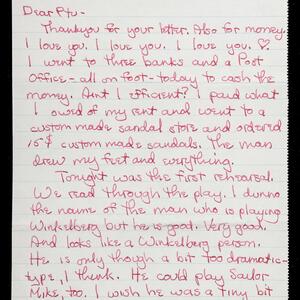 Dear Pty-
Thankyou for your letter. Also for money.
I love you. I love you. I love you. ♡
I went to three banks and a Post
Office - all on foot - today to cash the
money. Aint I efficient? I paid what
I owed of my rent and went to a
custom made sandal store and ordered
15¢ custom made sandals. The man
drew my feet and everything.
Tonight was the first rehearsal.
We read through the play. I dunno
the name of the man who is playing
Winkelberg but he is good. Very good.
And looks like a Winkelberg person.
He is only though a bit too dramatic-
type, I think. He could play Sailor
Mike, too. I wish he was a tiny bit